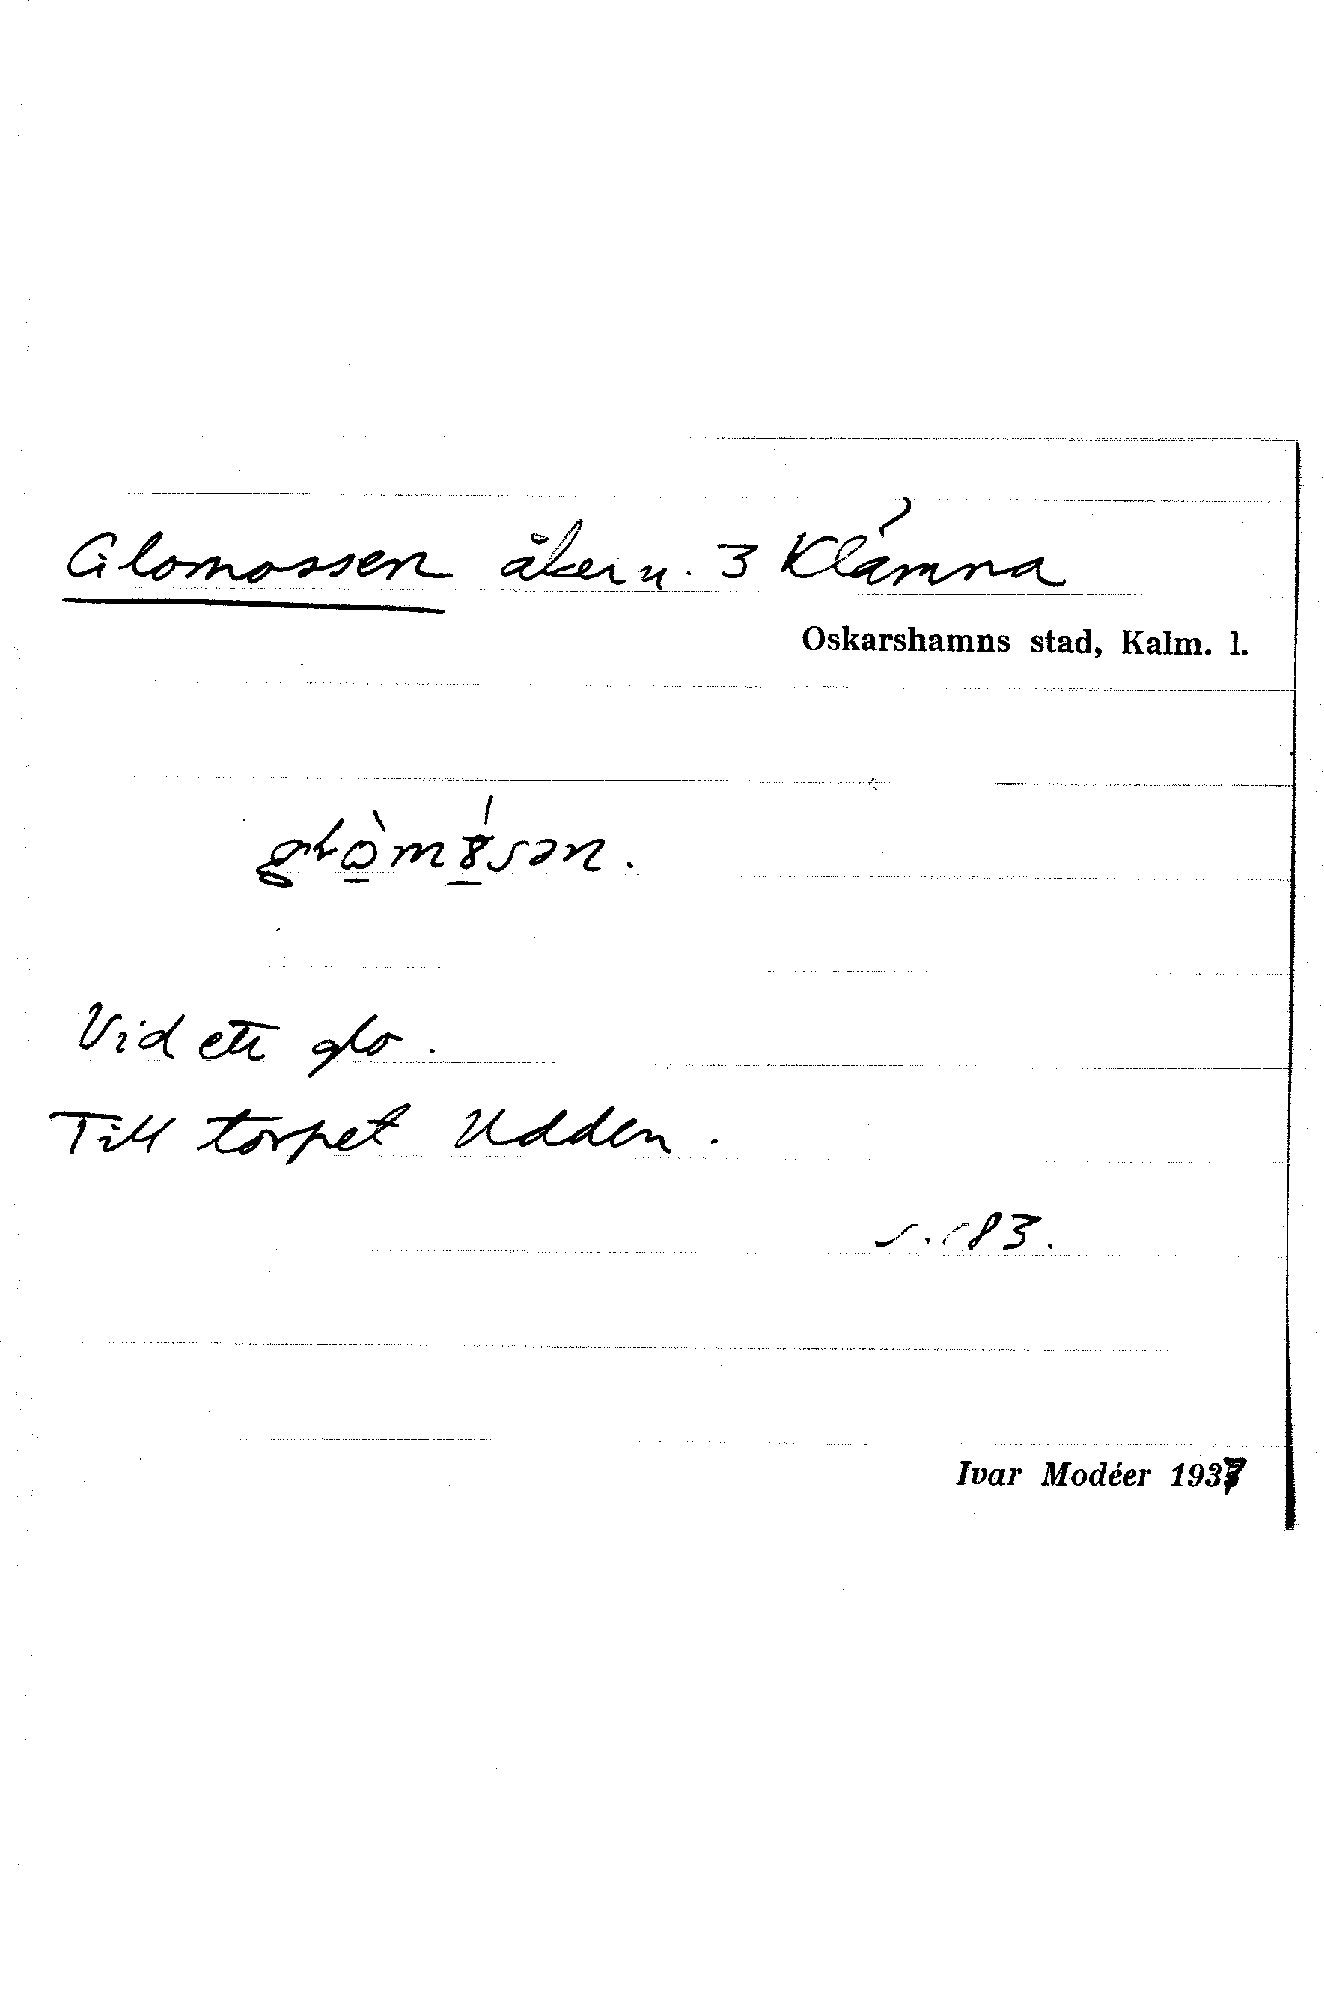 Glomossen åker u. 3 Klämna
Oskarshamns stad, Kalm. l.
Vid ett glo.
Till torpet Udden.
s. 183.
Ivar Modéer 1937